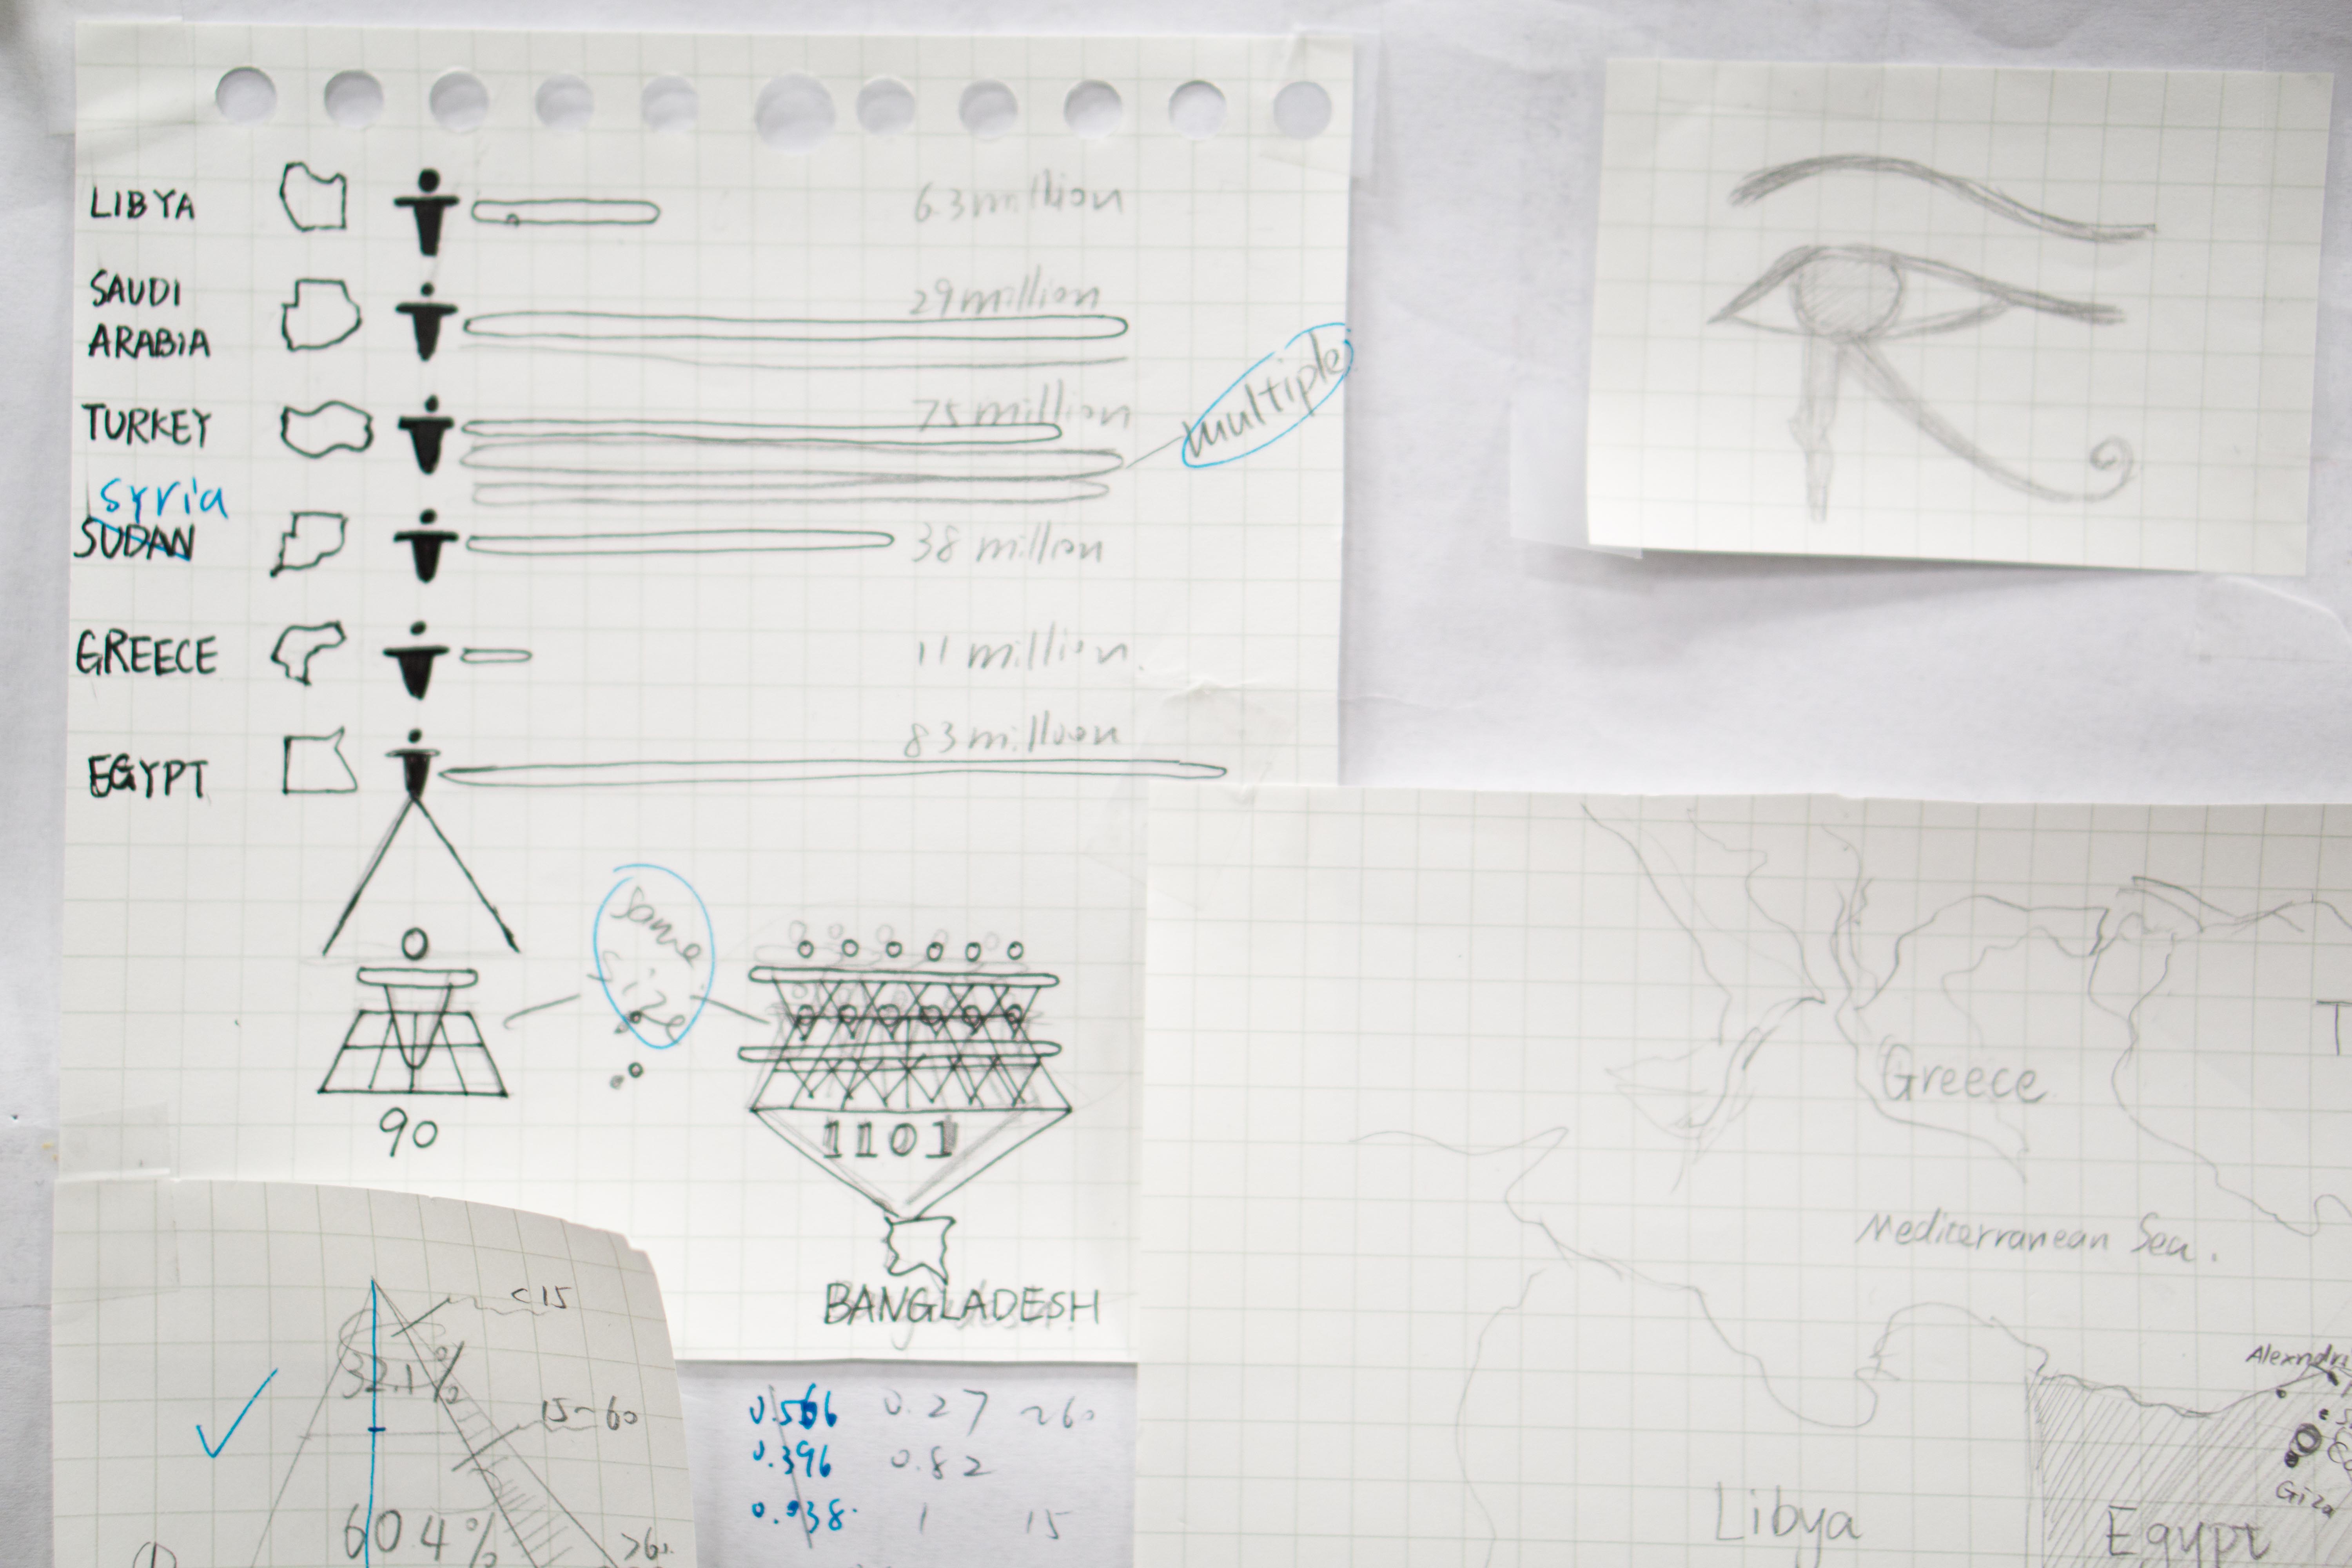 LIBYA 63million
SAUDI
ARABIA 29million
TURKEY 75million
multiple
syria
SUDAN 38 millon
GREECE 11 million.
EGYPT 83million
same
size
90
1101
BANGLADESH
<15
32.1%
15~60
60.4%
>60
0.566 0.27 ~60
0.396 0.82
0.038 1 15
Greece
T
Mediterranean Sea.
Alexndri
Giza
Libya
Egypt